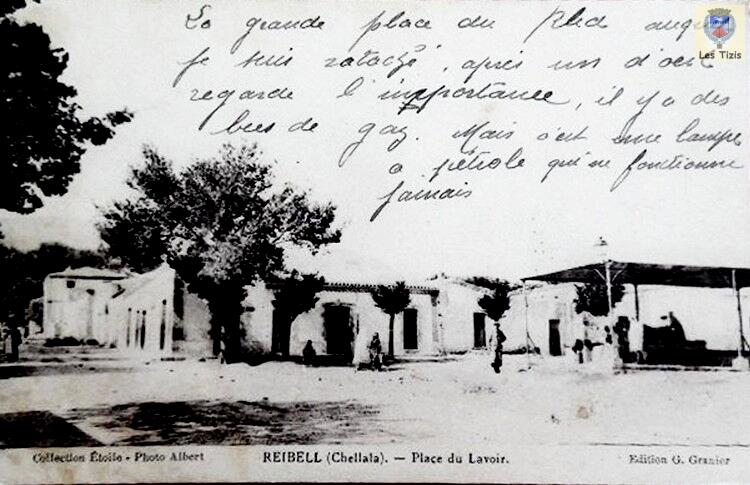 La grande place du Bled auquel
je suis rataché, après un d'oeil
regarde l'importance, il y a des
becs de gaz. Mais c'est une lampe
a pétrole qui ne fonctionne
jamais
Les Tizis
Collection Étoile - Photo Albert
REIBELL (Chellala). — Place du Lavoir.
Edition G. Granier